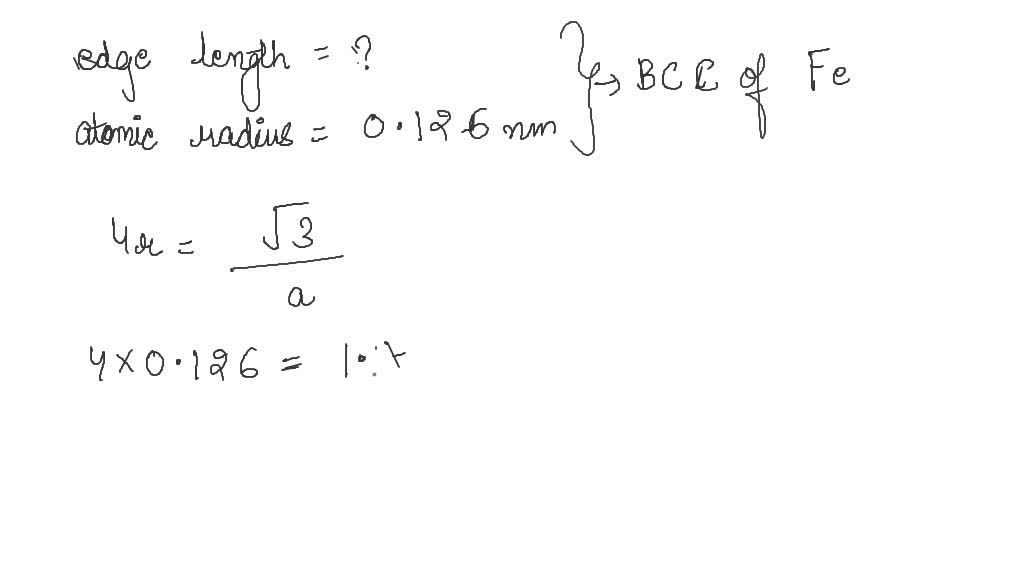 edge length = ?
atomic radius = 0.126 nm
→ BCC of Fe
4r = √3 / a
4 × 0.126 = 1.